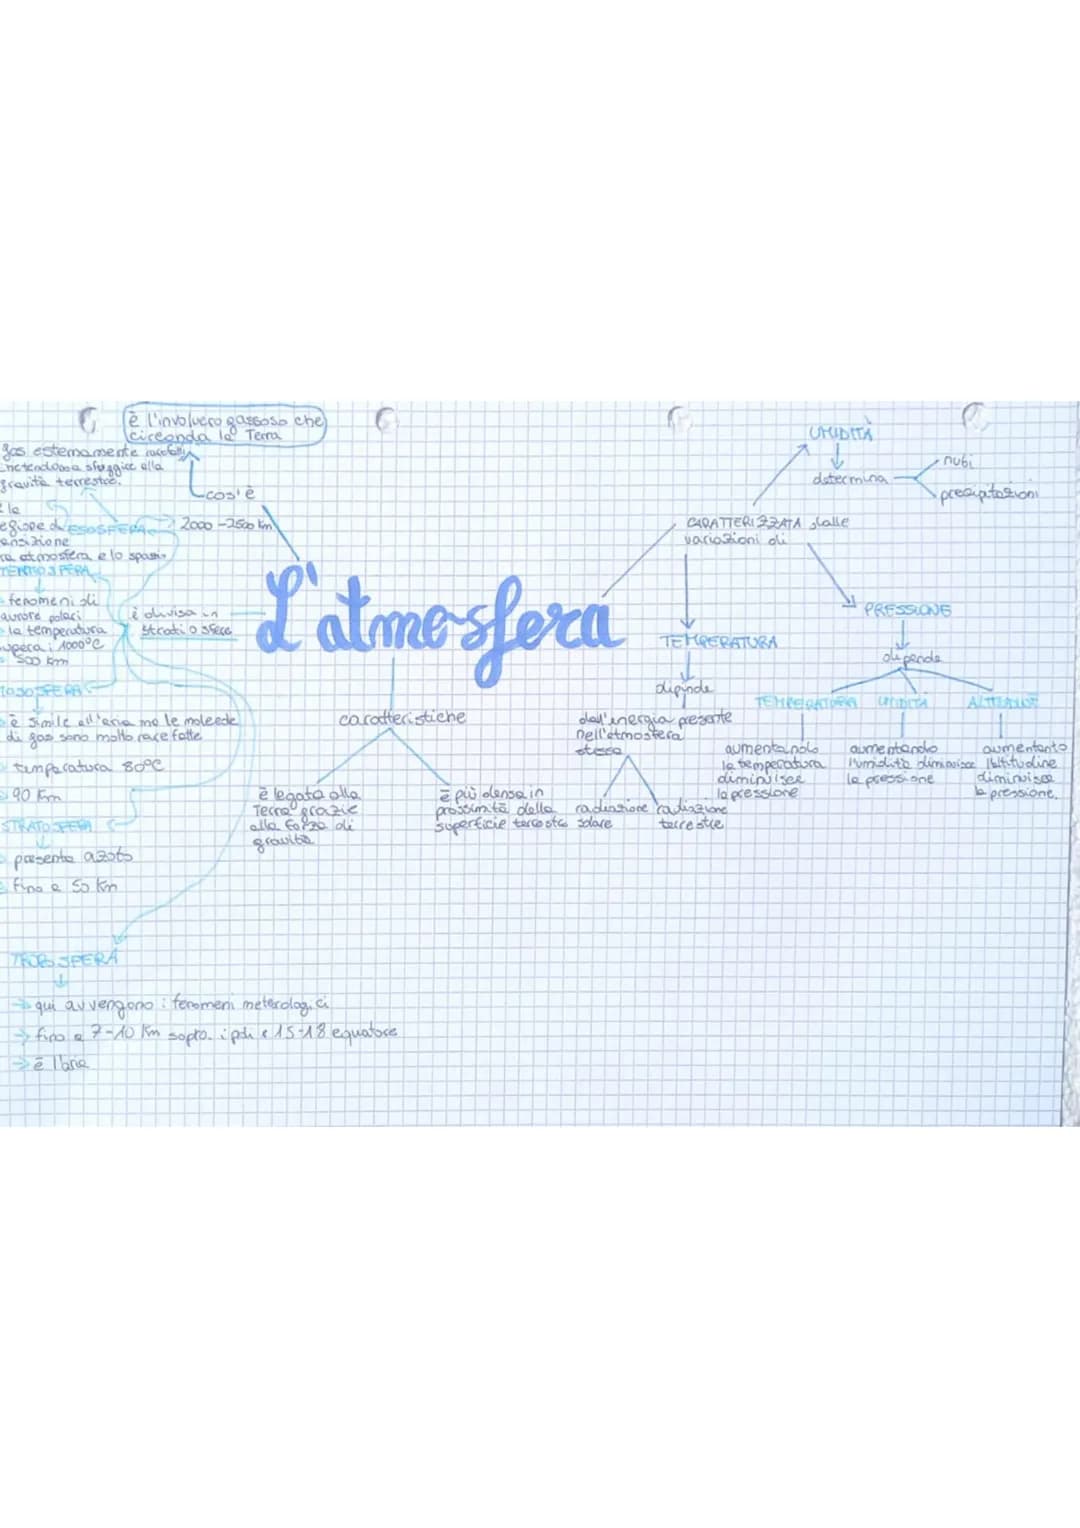 è l'involucro gassoso che
circonda la Terra
cos'è
gas estremamente
sfuggire alla
gravità terrestre.
ESOSFERA
2000 - 2500 km
atmosfera e lo spazio
TERMOSFERA
fenomeni di
aurore polari
la temperatura
supera i 1000°C
500 km
è divisa in
strati o sfere
L'atmosfera
MESOSFERA
è simile all'aria ma le molecole
di gas sono molto rarefatte
temperatura 80°C
90 km
STRATOSFERA
presenta azoto
fino a 50 km
TROPOSFERA
qui avvengono i fenomeni meterologici
fino a 7-10 km sopra i poli e 15-18 equatore
è l'aria
caratteristiche
è legata alla
Terra grazie
alla forza di
gravità
è più densa in
prossimità della
superficie terrestre
CARATTERIZZATA dalle
variazioni di
UMIDITÀ
determina
nubi
precipitazioni
TEMPERATURA
dipende
dall'energia presente
nell'atmosfera
stessa
radiazione
solare
radiazione
terrestre
PRESSIONE
dipende
TEMPERATURA
aumentando
la temperatura
diminuisce
la pressione
UMIDITÀ
aumentando
l'umidità diminuisce
la pressione
ALTITUDINE
aumentanto
l'altitudine
diminuisce
la pressione.